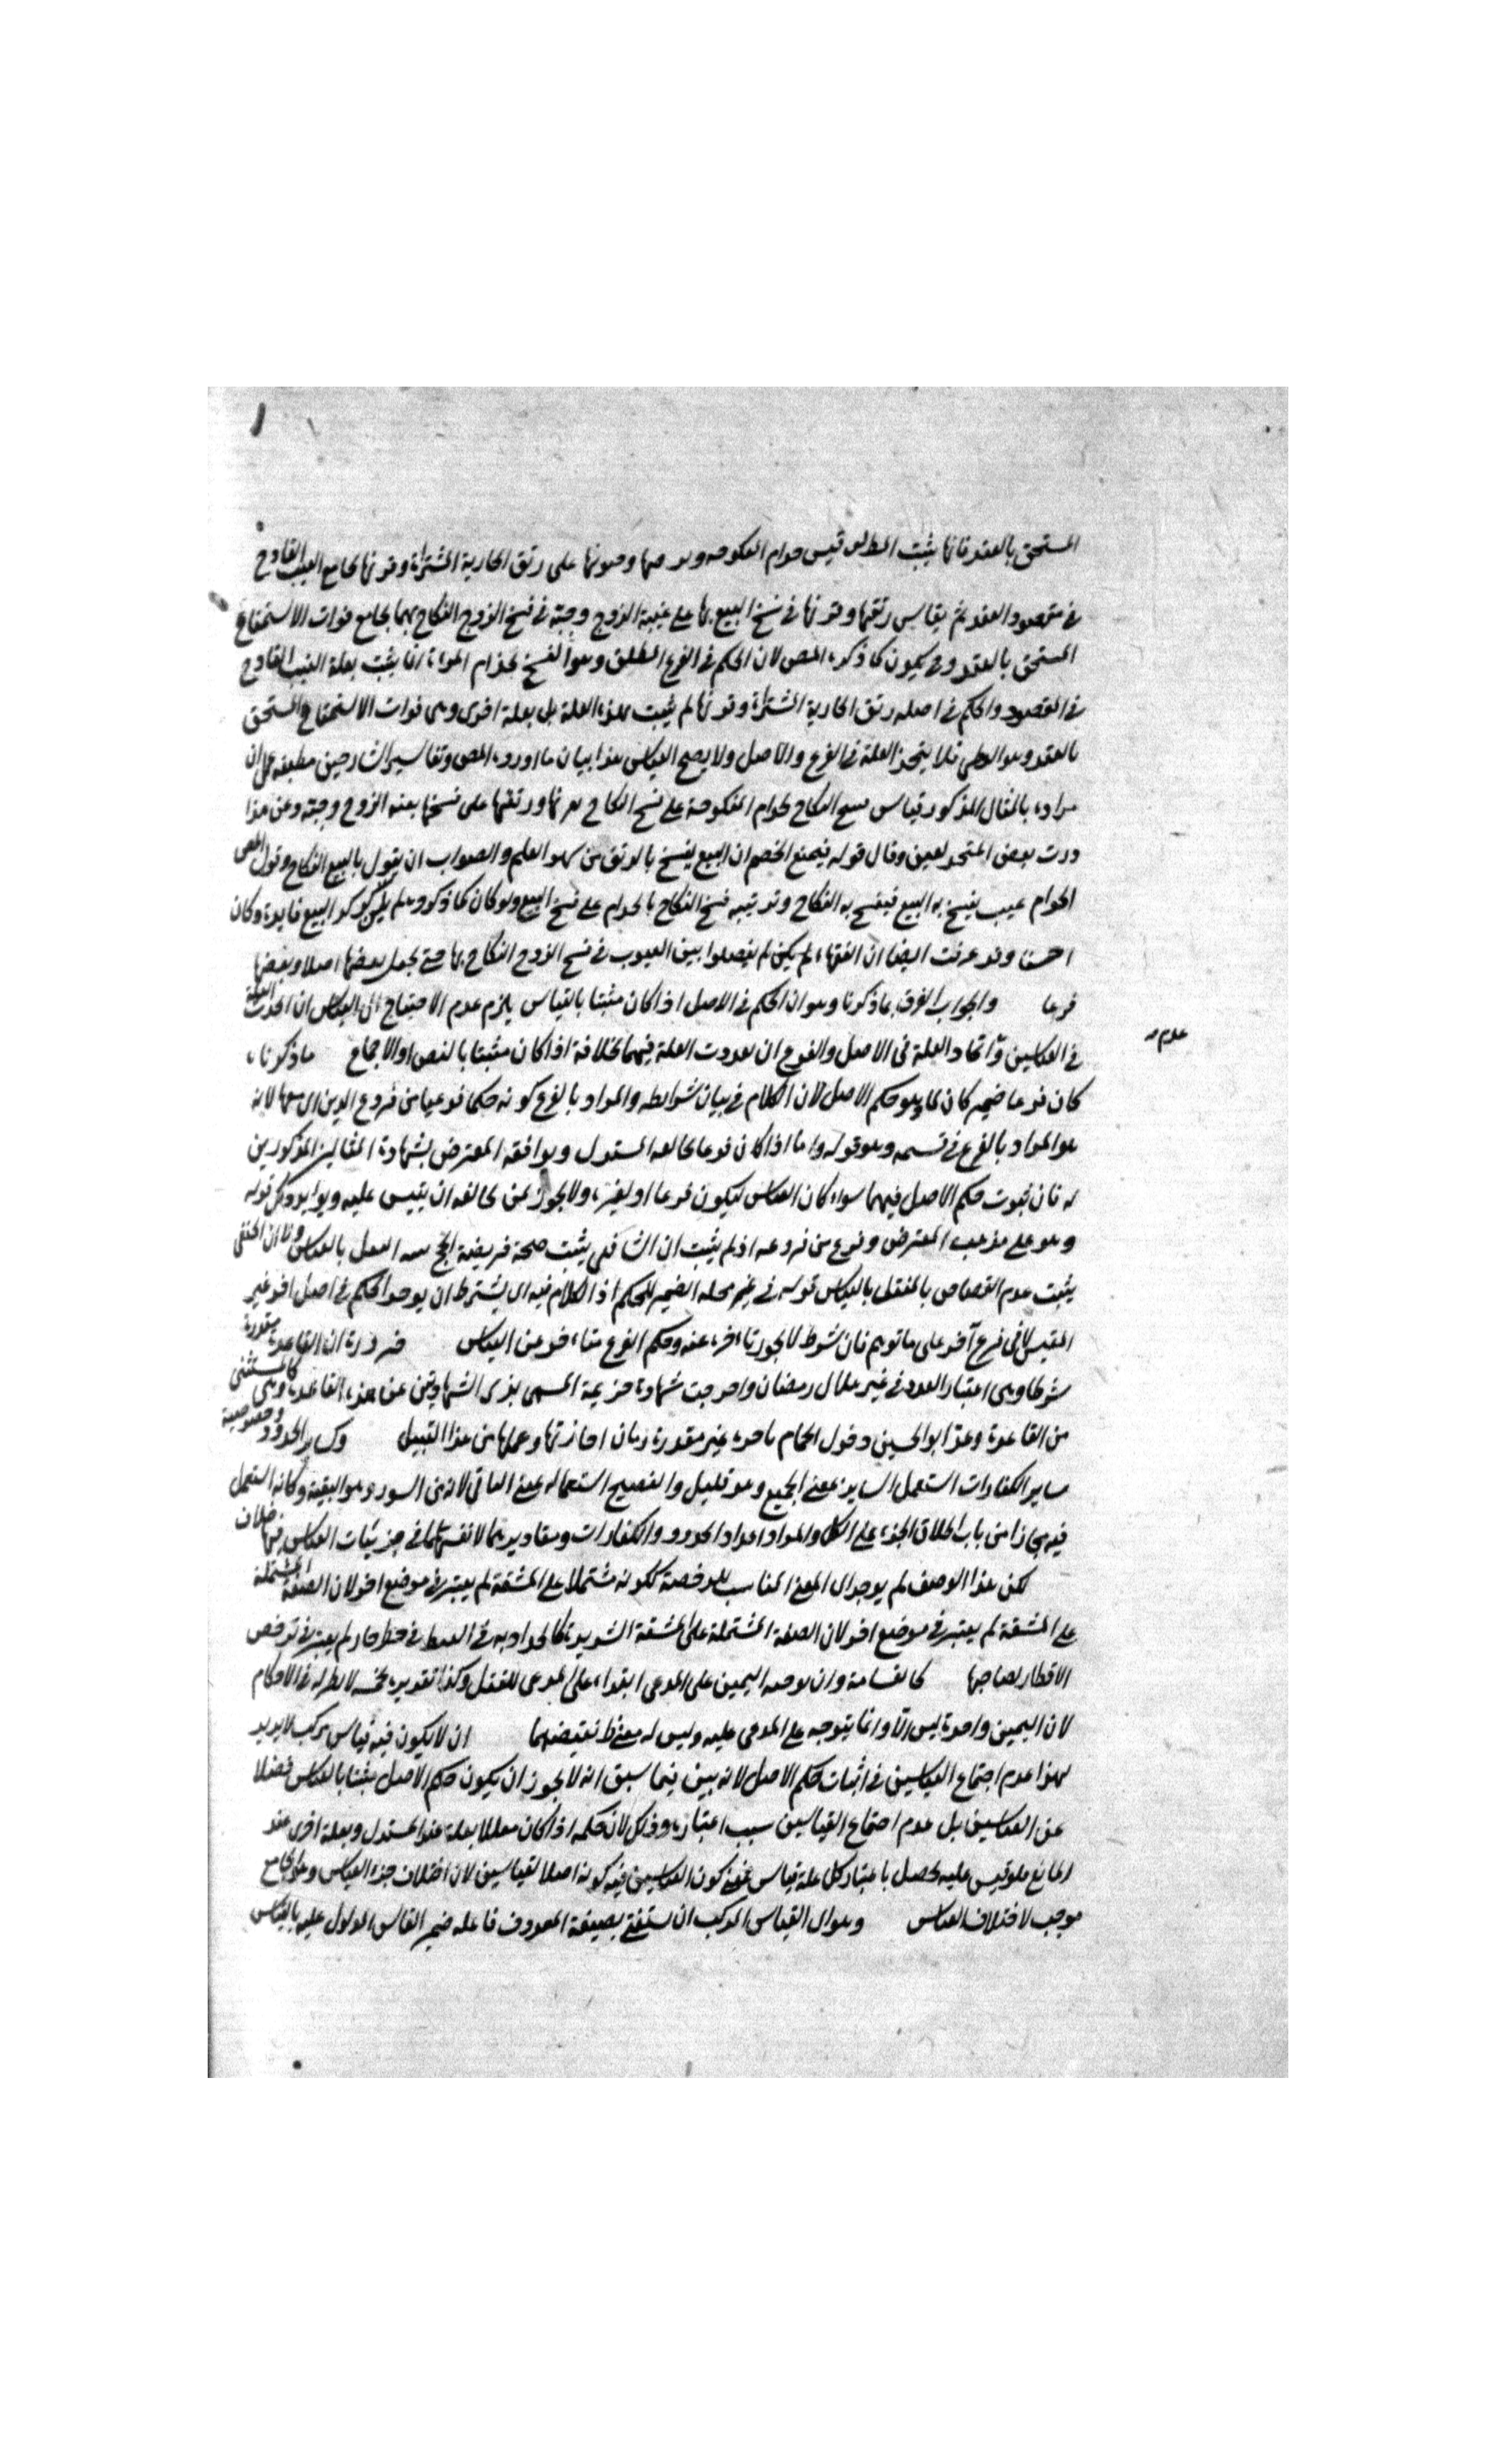 المستحق بالعقد فانما يثبت المطلب قيس جذام المنكوحة وجنونها على رتق الجارية المشتراة وقرنها بجامع العيب القادح
في مقصود العقد ثم يقاس رتقها وقرنها في فسخ البيع بها على عيبة الزوج وجبّه في فسخ الزوج النكاح بهما بجامع فوات الاستمتاع
المستحق بالعقد وح يكون كما ذكره المص لان الحكم في الفرع المطلق وهو الفسخ بجذام المراة انما يثبت بعلة العيب القادح
في المقصود والحكم في اصله رتق الجارية المشتراة وقرنها لم يثبت بهذه العلة بل بعلة اخرى وهي فوات الاستمتاع المستحق
بالعقد وهو الوطي فلا يتحد العلة في الفرع والاصل ولا يصح القياس هذا بيان ما اورده المص وتفاسير الشارحين مطبقة على ان
مراده بالمثال المذكور قياس فسخ النكاح بجذام المنكوحة على فسخ النكاح بقرنها ورتقها على فسخها بعنة الزوج وجبه وعن هذا
بعض وقال قوله فيمنع الخصم ان البيع يفسخ بالرتق من سهو القلم والصواب ان يقول بالبيع النكاح وقول المص
الجذام عيب يفسخ به البيع فيفسخ به النكاح وترتيبه فسخ النكاح بالجذام على فسخ البيع ولو كان كما ذكروه لم يكن لذكر البيع فايدة وكان
احسن وقد عرفت ايضا ان الفقهاء لم يفصلوا بين العيوب في فسخ الزوج النكاح بها حتى يجعل بعضها اصلا وبعضها
فرعا والجواب الفرق بما ذكرنا وهو ان الحكم في الاصل اذا كان مثبتا بالقياس يلزم عدم الاحتياج الى القياس ان اتحدت العلة
عدم
في القياسين واتحاد العلة في الاصل والفرع ان تعددت العلة فيهما بخلافه اذا كان مثبتا بالنص او الاجماع ما ذكرناه
كان فرعا ضمير كان لما وهو حكم الاصل لان الكلام في بيان شرايطه والمراد بالفرع كونه حكما فرعيا من فروع الدين لانه
هو المراد بالفرع في قسمه وهو قوله واما اذا كان فرعا يخالفه المستدل ويوافقه المعترض بشهادة المثالين المذكورين
له فان ثبوت حكم الاصل فيهما سواء كان القياس ليكون فرعا او لغيره ولا يجوز لمن يخالفه ان يقيس عليه ويؤيد ذلك قوله
وهو على مذهب المعترض وفرع من فروعه اذ لم يثبت ان الشافعي يثبت صحة فريضة الحج بنية النفل بالقياس وان الحنفي
يثبت عدم القصاص بالمثقل بالقياس قوله في غير محله الضمير للحكم اذ الكلام فيه اي يشترط ان يوجد الحكم في اصل اخر غير
المقيس لا في فرع آخر على ما توهم فان شرط لا يجوز تاخره عنه وحكم الفرع متاخر عن القياس فردة ان القاعدة مقدرة
شرطا وهي اعتبار العدد في غير هلال رمضان وخرجت شهادة خزيمة المسمى بذي الشهادتين عن هذه القاعدة وهي كالمستثنى
من القاعدة وعد ابو الحسين دخول الحمام باجرة غير مقدرة زمان اجازتها وعملها من هذا القبيل وكساير الحدود وخصوصية
ساير الكفارات استعمل الساير بمعنى الجميع وهو قليل والفصيح استعماله بمعنى الباقي لانه من السور وهو البقية وكانه استعمل
فيه مجازا من باب اطلاق الجزء على الكل والمراد اعداد الحدود والكفارات ومقاديرهما لا نفسهما في جزئيات القياس فيها خلاف
لكن هذا الوصف لم يوجد اي المعنى المناسب للرخصة ككونه مشتملا على المشقة لم يعتبر في موضع اخر لان الصنعة المشتملة
على المشقة لم يعتبر في موضع اخر لان الصنعة المشتملة على المشقة الشديدة كالحدادة في القيظ في قطر حار لم يعتبر في ترخص
الافطار لصاحبها كالقسامة وان توجه اليمين على المدعي ابتداء على المدعى للقتل وكذا تقديره بخمسين لا نظير له في الاحكام
لان اليمين واحدة ليس الا وانما يتوجه على المدعى عليه وليس له معنى يقتضيهما ان لا يكون فيه قياس مركب لا يريد
بهذا عدم اجتماع القياسين في اثبات حكم الاصل لانه بين فيما سبق انه لا يجوز ان يكون حكم الاصل مثبتا بالقياس فضلا
عن القياسين بل عدم اجتماع القياسين سبب اعتباره وذلك لان حكمه اذا كان معللا بعلة عند المستدل وبعلة اخرى عند
المانع فلو قيس عليه يحصل باعتبار كل علة قياس فمعنى كون القياسين فيه كونه اصلا لقياسين لان اختلاف جزء القياس وهي الجامع
موجب لاختلاف القياس وهو اي القياس المركب ان يستغنى بصيغة المعروف فاعله ضمير القائس المدلول عليه بالقياس